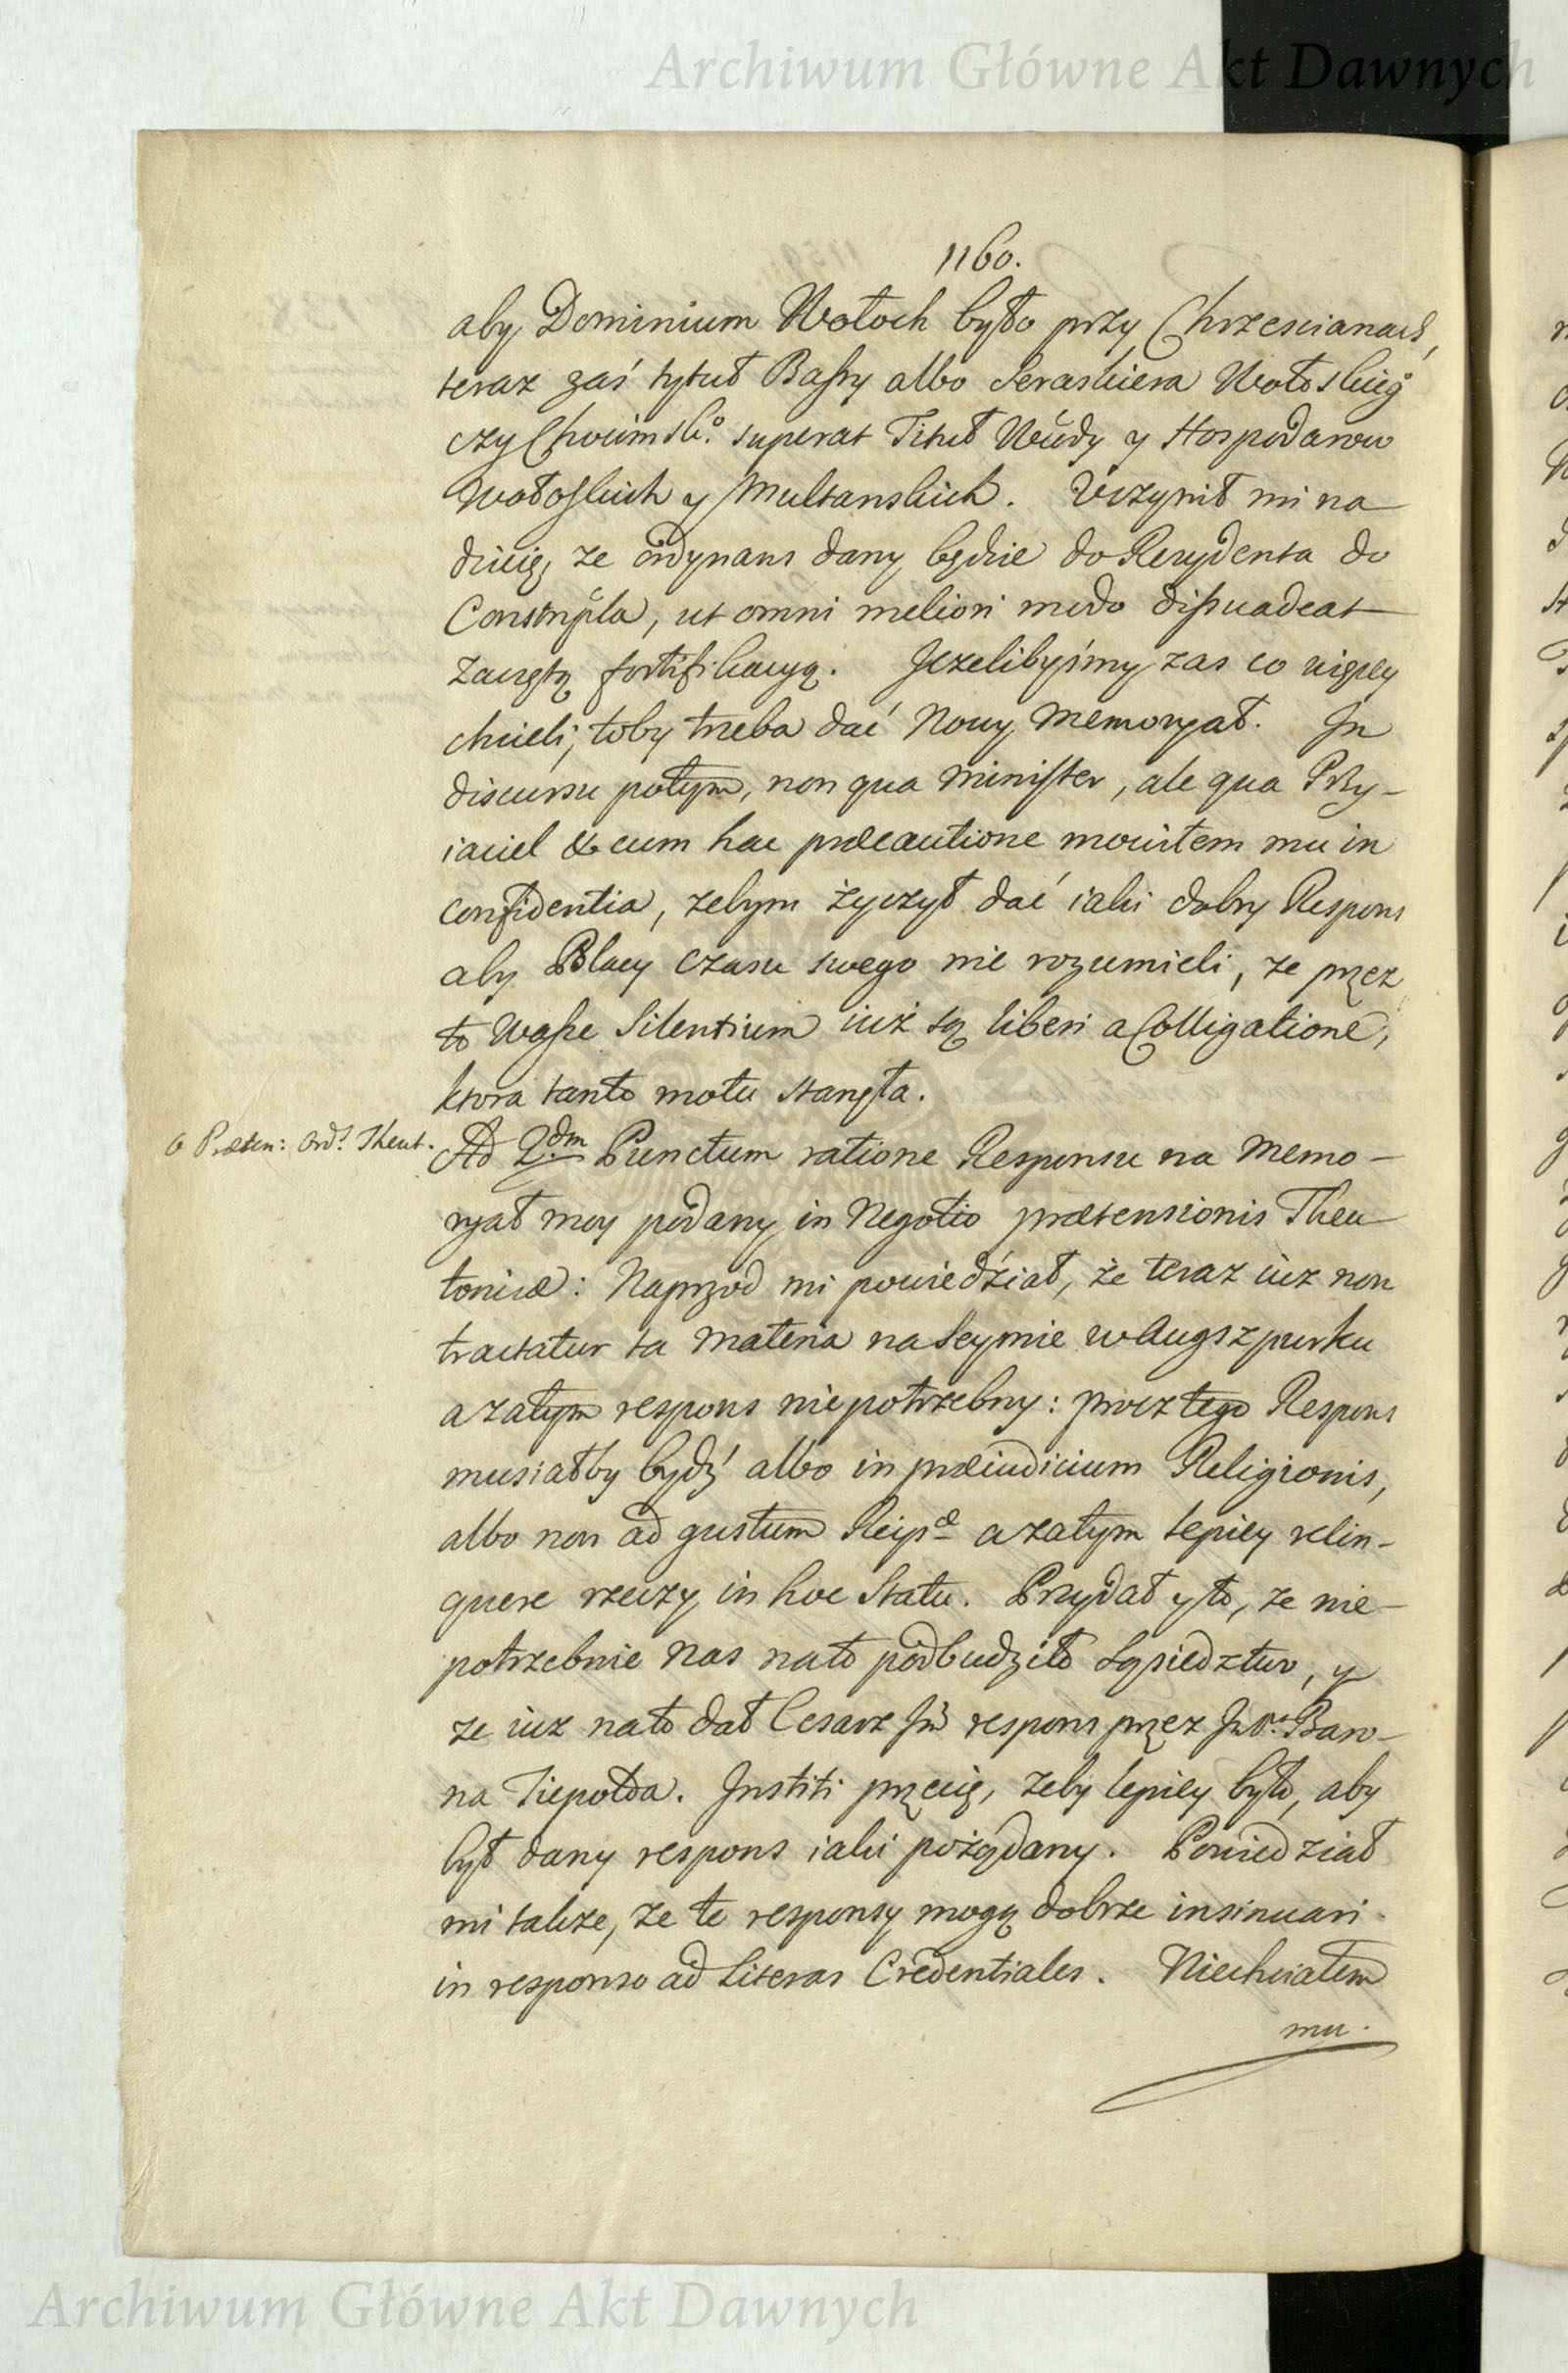 Archiwum Główne Akt Dawnych
1160.
aby Dominium Wołoch było przy Chrzescianach,
teraz zaś tytuł Baszy albo Seraskiera Wołoskieg°
czy Chocimsk.° superat Tituł Wdy y Hospodarow
Wołoskich y Multanskich. Uczynił mi na
dzieię, ze ordynans dany będzie do Rezydenta do
Constnpla, ut omni meliori modo dissuadeat
zaczętą fortifikacyą. Jezelibyśmy zas co więcey
chcieli, toby trzeba dać Nowy Memoryał. In
discursu potym, non qua Minister, ale qua Przy-
iaciel & cum hac præcautione mowiłem mu in
confidentia, zebym życzył dać iaki dobry Respons
aby Polacy czasu swego nie rozumieli, ze przez
to Wasze Silentium iuż są liberi a Colligatione,
ktora tanto motu stanęła.
o Præten: Ord: Theut.
Ad 2dm Punctum ratione Responsu na Memo-
ryał moy podany in Negotio prætensionis Theu
tonicæ: Naprzod mi powiedział, że teraz iuz non
tractatur ta Materia na Seymie w Augszpurku
a zatym respons niepotrzebny: procz tego Respons
musiałby bydź albo in præiudicium Religionis,
albo non ad gustum Reipcæ a zatym lepiey relin-
quere rzeczy in hoc Statu. Przydał y to, ze nie-
potrzebnie nas na to podbudziło Sąsiedztwo, y
ze iuz na to dał Cesarz Jm respons przez Baro-
na Tiepolda. Institi przecię, zeby lepiey było, aby
był dany respons iaki pożądany. Powiedział
mi takze, ze te responsy mogą dobrze insinuari
in responso ad Literas Credentiales. Niechciałem
mu.
Archiwum Główne Akt Dawnych